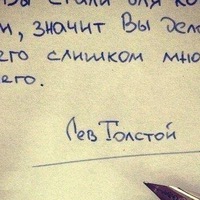 Вы стали для ко
м, значит Вы дела
его слишком мно
его.
Лев Толстой